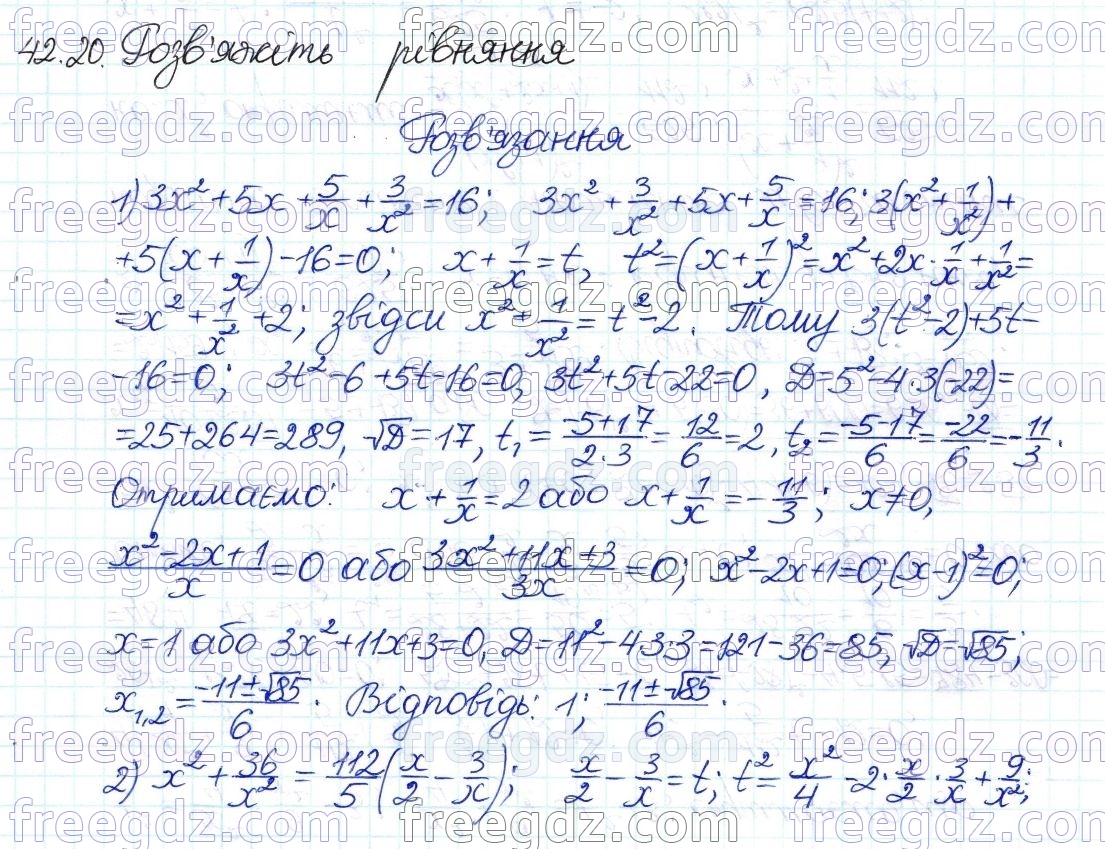 42.20. Розв'яжіть рівняння
Розв'язання
1) 3x² + 5x + 5/x + 3/x² = 16; 3x² + 3/x² + 5x + 5/x = 16; 3(x² + 1/x²) +
+ 5(x + 1/x) - 16 = 0; x + 1/x = t, t² = (x + 1/x)² = x² + 2x · 1/x + 1/x² =
= x² + 1/x² + 2; звідси x² + 1/x² = t² - 2. Тому 3(t² - 2) + 5t -
- 16 = 0; 3t² - 6 + 5t - 16 = 0, 3t² + 5t - 22 = 0, D = 5² - 4 · 3(-22) =
= 25 + 264 = 289, √D = 17, t₁ = (-5+17)/(2·3) = 12/6 = 2, t₂ = (-5-17)/6 = -22/6 = -11/3.
Отримаємо: x + 1/x = 2 або x + 1/x = -11/3; x ≠ 0,
(x² - 2x + 1)/x = 0 або (3x² + 11x + 3)/3x = 0; x² - 2x + 1 = 0; (x - 1)² = 0;
x = 1 або 3x² + 11x + 3 = 0, D = 11² - 4·3·3 = 121 - 36 = 85, √D = √85;
x₁,₂ = (-11 ± √85)/6. Відповідь: 1; (-11 ± √85)/6.
2) x² + 36/x² = 112/5 (x/2 - 3/x); x/2 - 3/x = t; t² = x²/4 - 2 · x/2 · 3/x + 9/x²;
freegdz.com